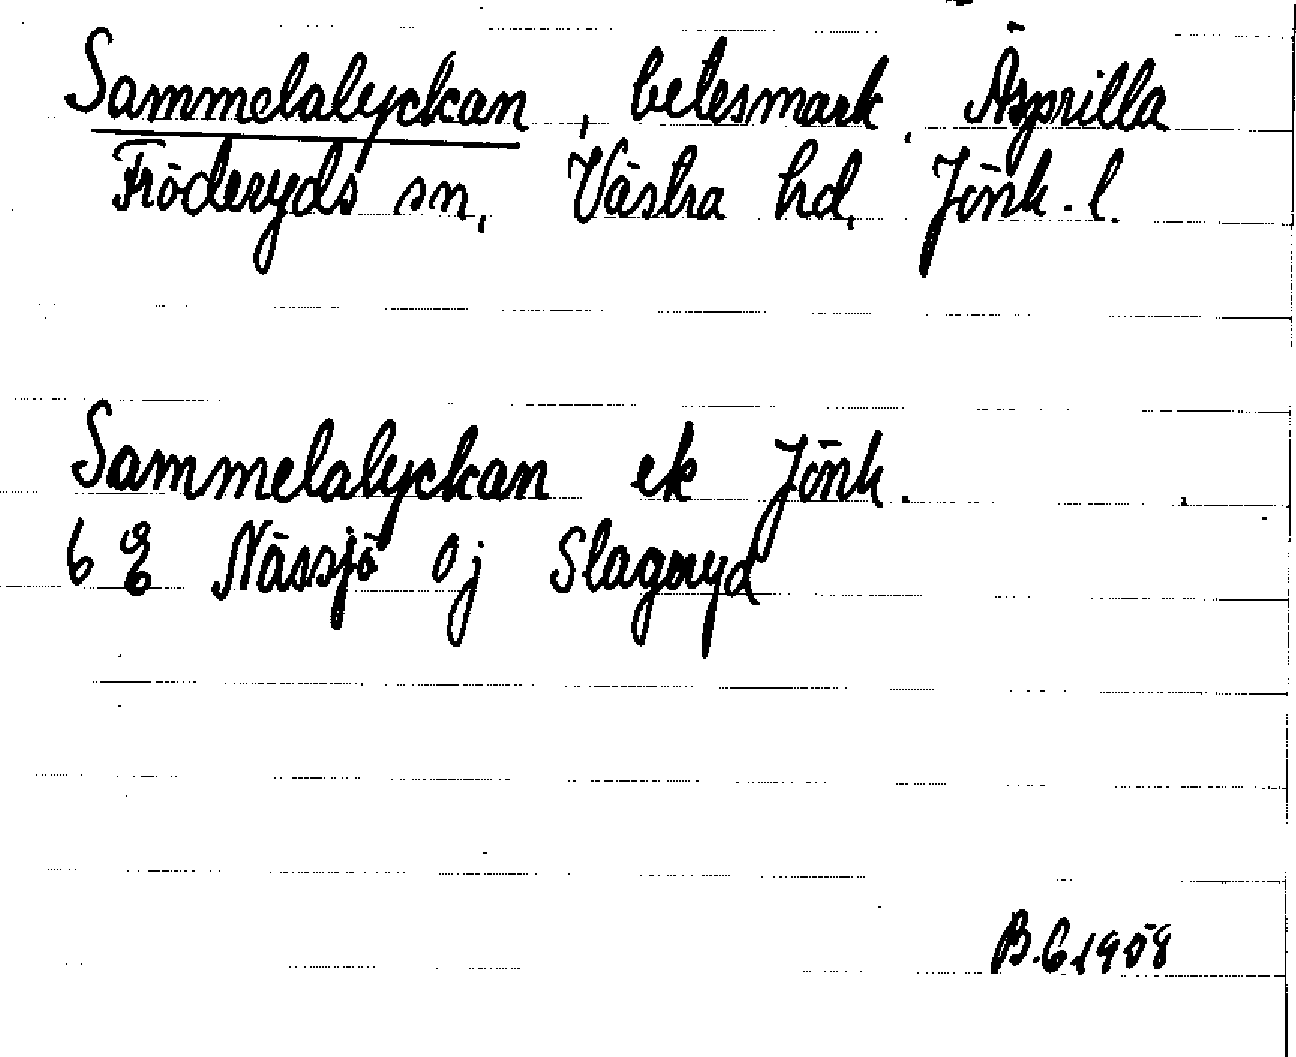 Sammelalyckan, betesmark, Äsprilla
Fröderyds sn, Västra hd, Jönk. l.
Sammelalyckan ek Jönk.
6 E Nässjö Oj Slageryd
B.G 1908